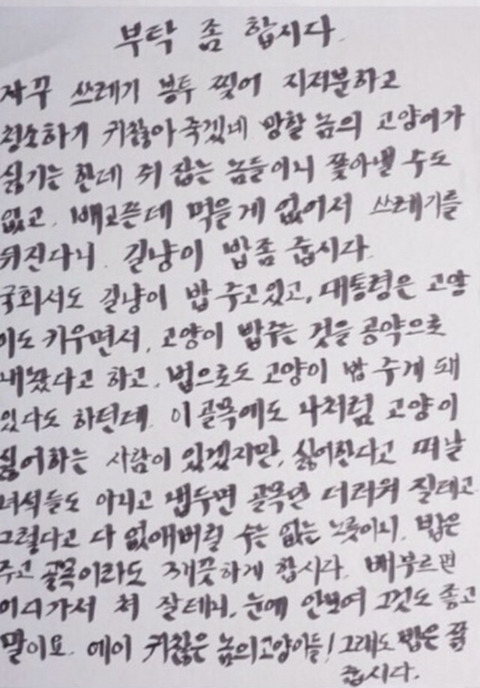 부탁 좀 합시다.
자꾸 쓰레기 봉투 찢어 지저분하고
청소하기 귀찮아 죽겠네 망할 놈의 고양이가
싫기는 한데 쥐 잡는 놈들이니 쫓아낼 수도
없고. 배고픈데 먹을게 없어서 쓰레기를
뒤진다니. 길냥이 밥좀 줍시다.
국회서도 길냥이 밥주고있고, 대통령은 고양
이도 키우면서, 고양이 밥주는 것을 공약으로
내놨다고 하고, 법으로도 고양이 밥 주게 돼
있다도 하던데. 이골목에도 나처럼 고양이
싫어하는 사람이 있겠지만, 싫어한다고 떠날
녀석들도 아니고 냅두면 골목만 더러워 질테고
그렇다고 다 없애버릴 수는 없는 노릇이니. 밥은
주고 골목이라도 깨끗하게 합시다. 배부르면
어디가서 쳐 잘테니, 눈에 안보여 그것도 좋고
말이요. 에이 귀찮은 놈의고양이들! 그래도 밥은 꼭
줍시다.